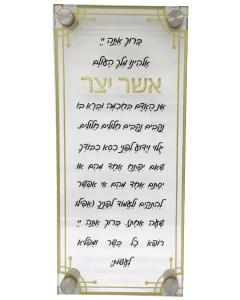 ברוך אתה יי
אלהינו מלך העולם
אשר יצר
את האדם בחכמה וברא בו
נקבים נקבים חלולים חלולים.
גלוי וידוע לפני כסא כבודך
שאם יפתח אחד מהם או
יסתם אחד מהם אי אפשר
להתקים ולעמוד לפניך (אפילו
שעה אחת). ברוך אתה יי
רופא כל בשר ומפליא
לעשות: